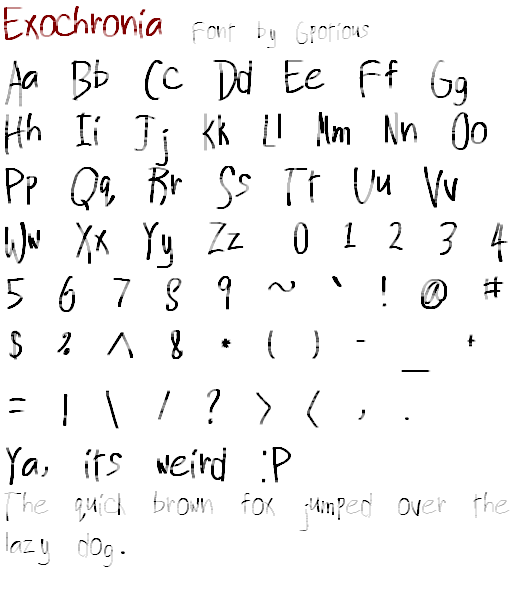 Exochronia Font by Gporious
Aa Bb Cc Dd Ee Ff Gg
Hh Ii Jj Kk Ll Mm Nn Oo
Pp Qq Rr Ss Tt Uu Vv
Ww Xx Yy Zz 0 1 2 3 4
5 6 7 8 9 ~ ` ! @ #
$ % ^ & * ( ) - _ +
= | \ / ? > < , .
Ya, its weird :P
The quick brown fox jumped over the
lazy dog.